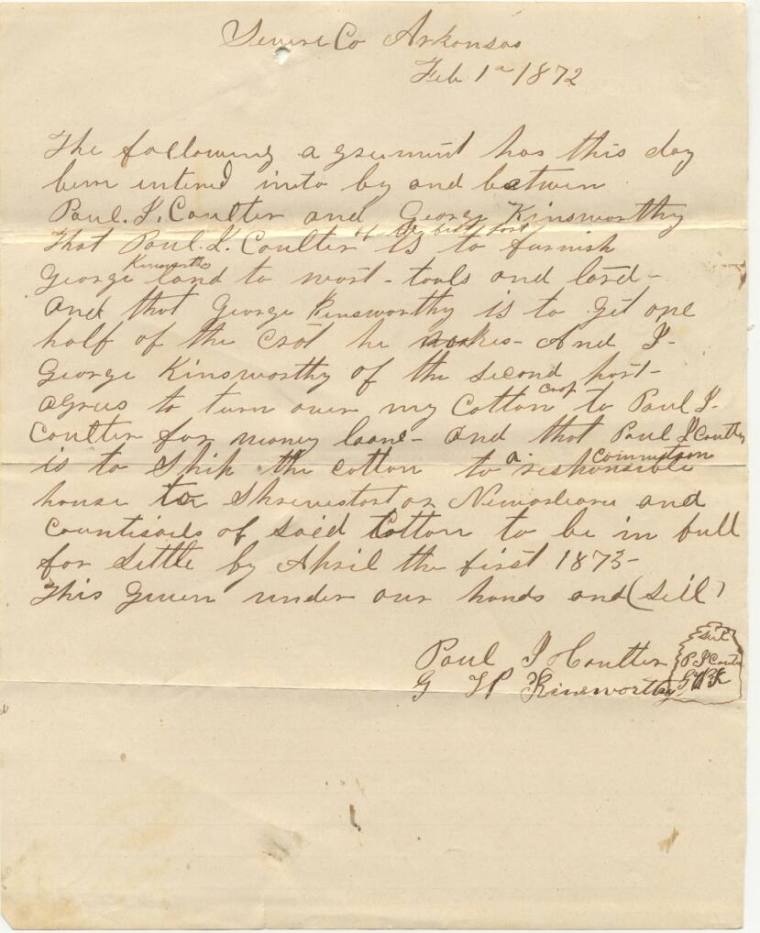 Sevier Co Arkansas
Feb 1st 1872
The following agreement has this day
been entered into by and between
Paul. J. Coulter and George Kinsworthy
of the first part
That Paul. J. Coulter is to furnish
Kinsworthy
George land to work - tools and land -
And that George Kinsworthy is to get one
half of the crop he makes - And I -
George Kinsworthy of the second part -
agrees to turn over my cotton crop to Paul J -
Coulter for money loane - and that Paul J Coulter
commission
is to Ship the cotton to a responsible
house to Shreveport or and
of said Cotton to be in full
for settle by April the first 1873 -
This Given under our hands and (Sell)
Paul J Coulter
G W Kinsworthy
Seal
P. J. Coulter
G W K